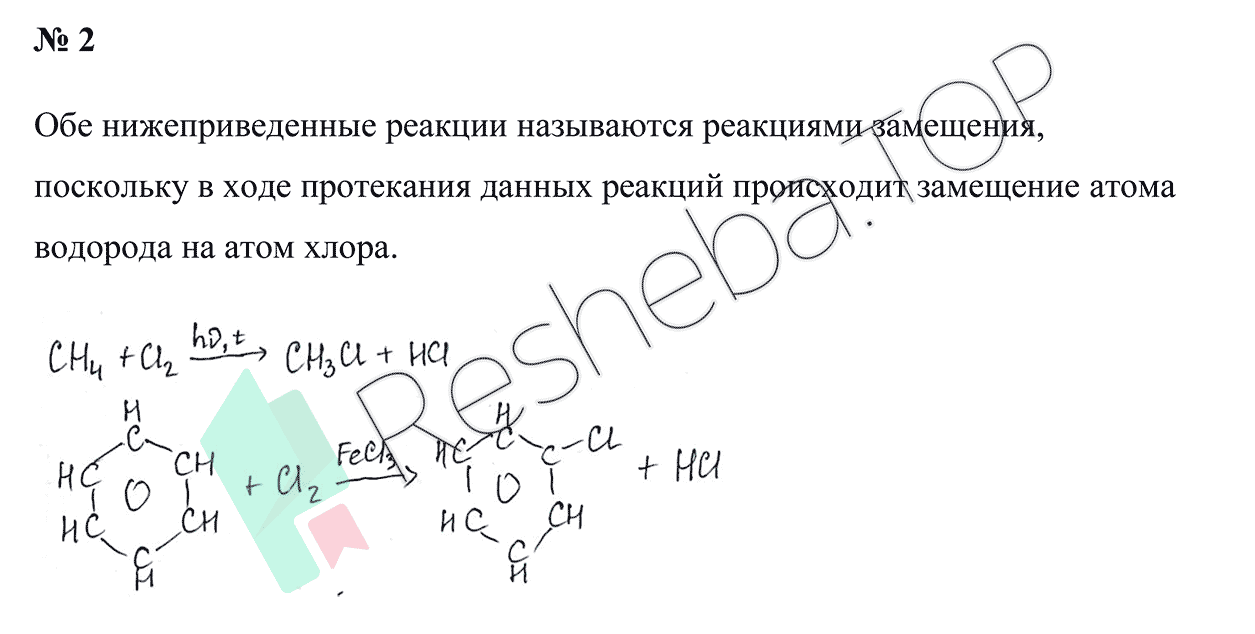 № 2
Обе нижеприведенные реакции называются реакциями замещения,
поскольку в ходе протекания данных реакций происходит замещение атома
водорода на атом хлора.
CH₄ + Cl₂ hν, t → CH₃Cl + HCl
H
C
HC CH
HC CH
C
H
+ Cl₂ FeCl₃ →
H
HC C C – Cl
HC CH
C
H
+ HCl
Resheba.TOP